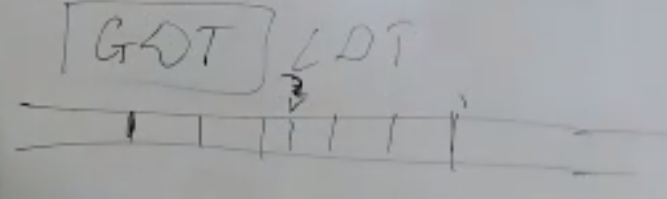 GDT LDT